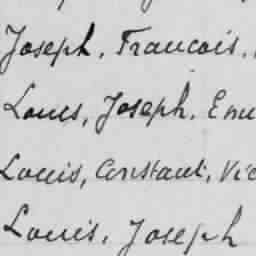 Joseph, Francois,
Louis, Joseph, Emi
Louis, Constant, Vic
Louis, Joseph